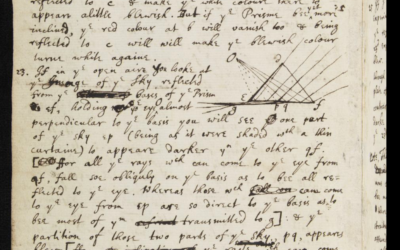 reflected to c & make yᵉ white colour there to
appears a little blewish. But if yᵉ Prisme bee yet more
inclined yᵉ red colour at b will vanish too & being
reflected to c will will make yᵉ blewish colour
turne white againe.
23. If in yᵉ open aire you looke at
yᵉ Image of yᵉ sky reflected
from yᵉ basis of yᵉ Prism
ef, holding yᵒ eye almost
perpendicular to yᵉ basis you will see one part
of yᵉ sky ep (being as it were shaded wᵗʰ a thin
curtaine) to appeare darker yⁿ yᵉ other qf.
For all yᵉ rays wᶜʰ can come to yᵉ eye from
qf, fall soe obliqᵉly on yᵉ basis as to bee all re-
flected to yᵉ eye. Whereas those wᶜʰ can come
to yᵉ eye from ep are so direct to yᵉ basis as to
bee most of yᵐ transmitted to g: & yᵉ
partition of those two parts of yᵉ sky pq, appeares
O
E
p q f